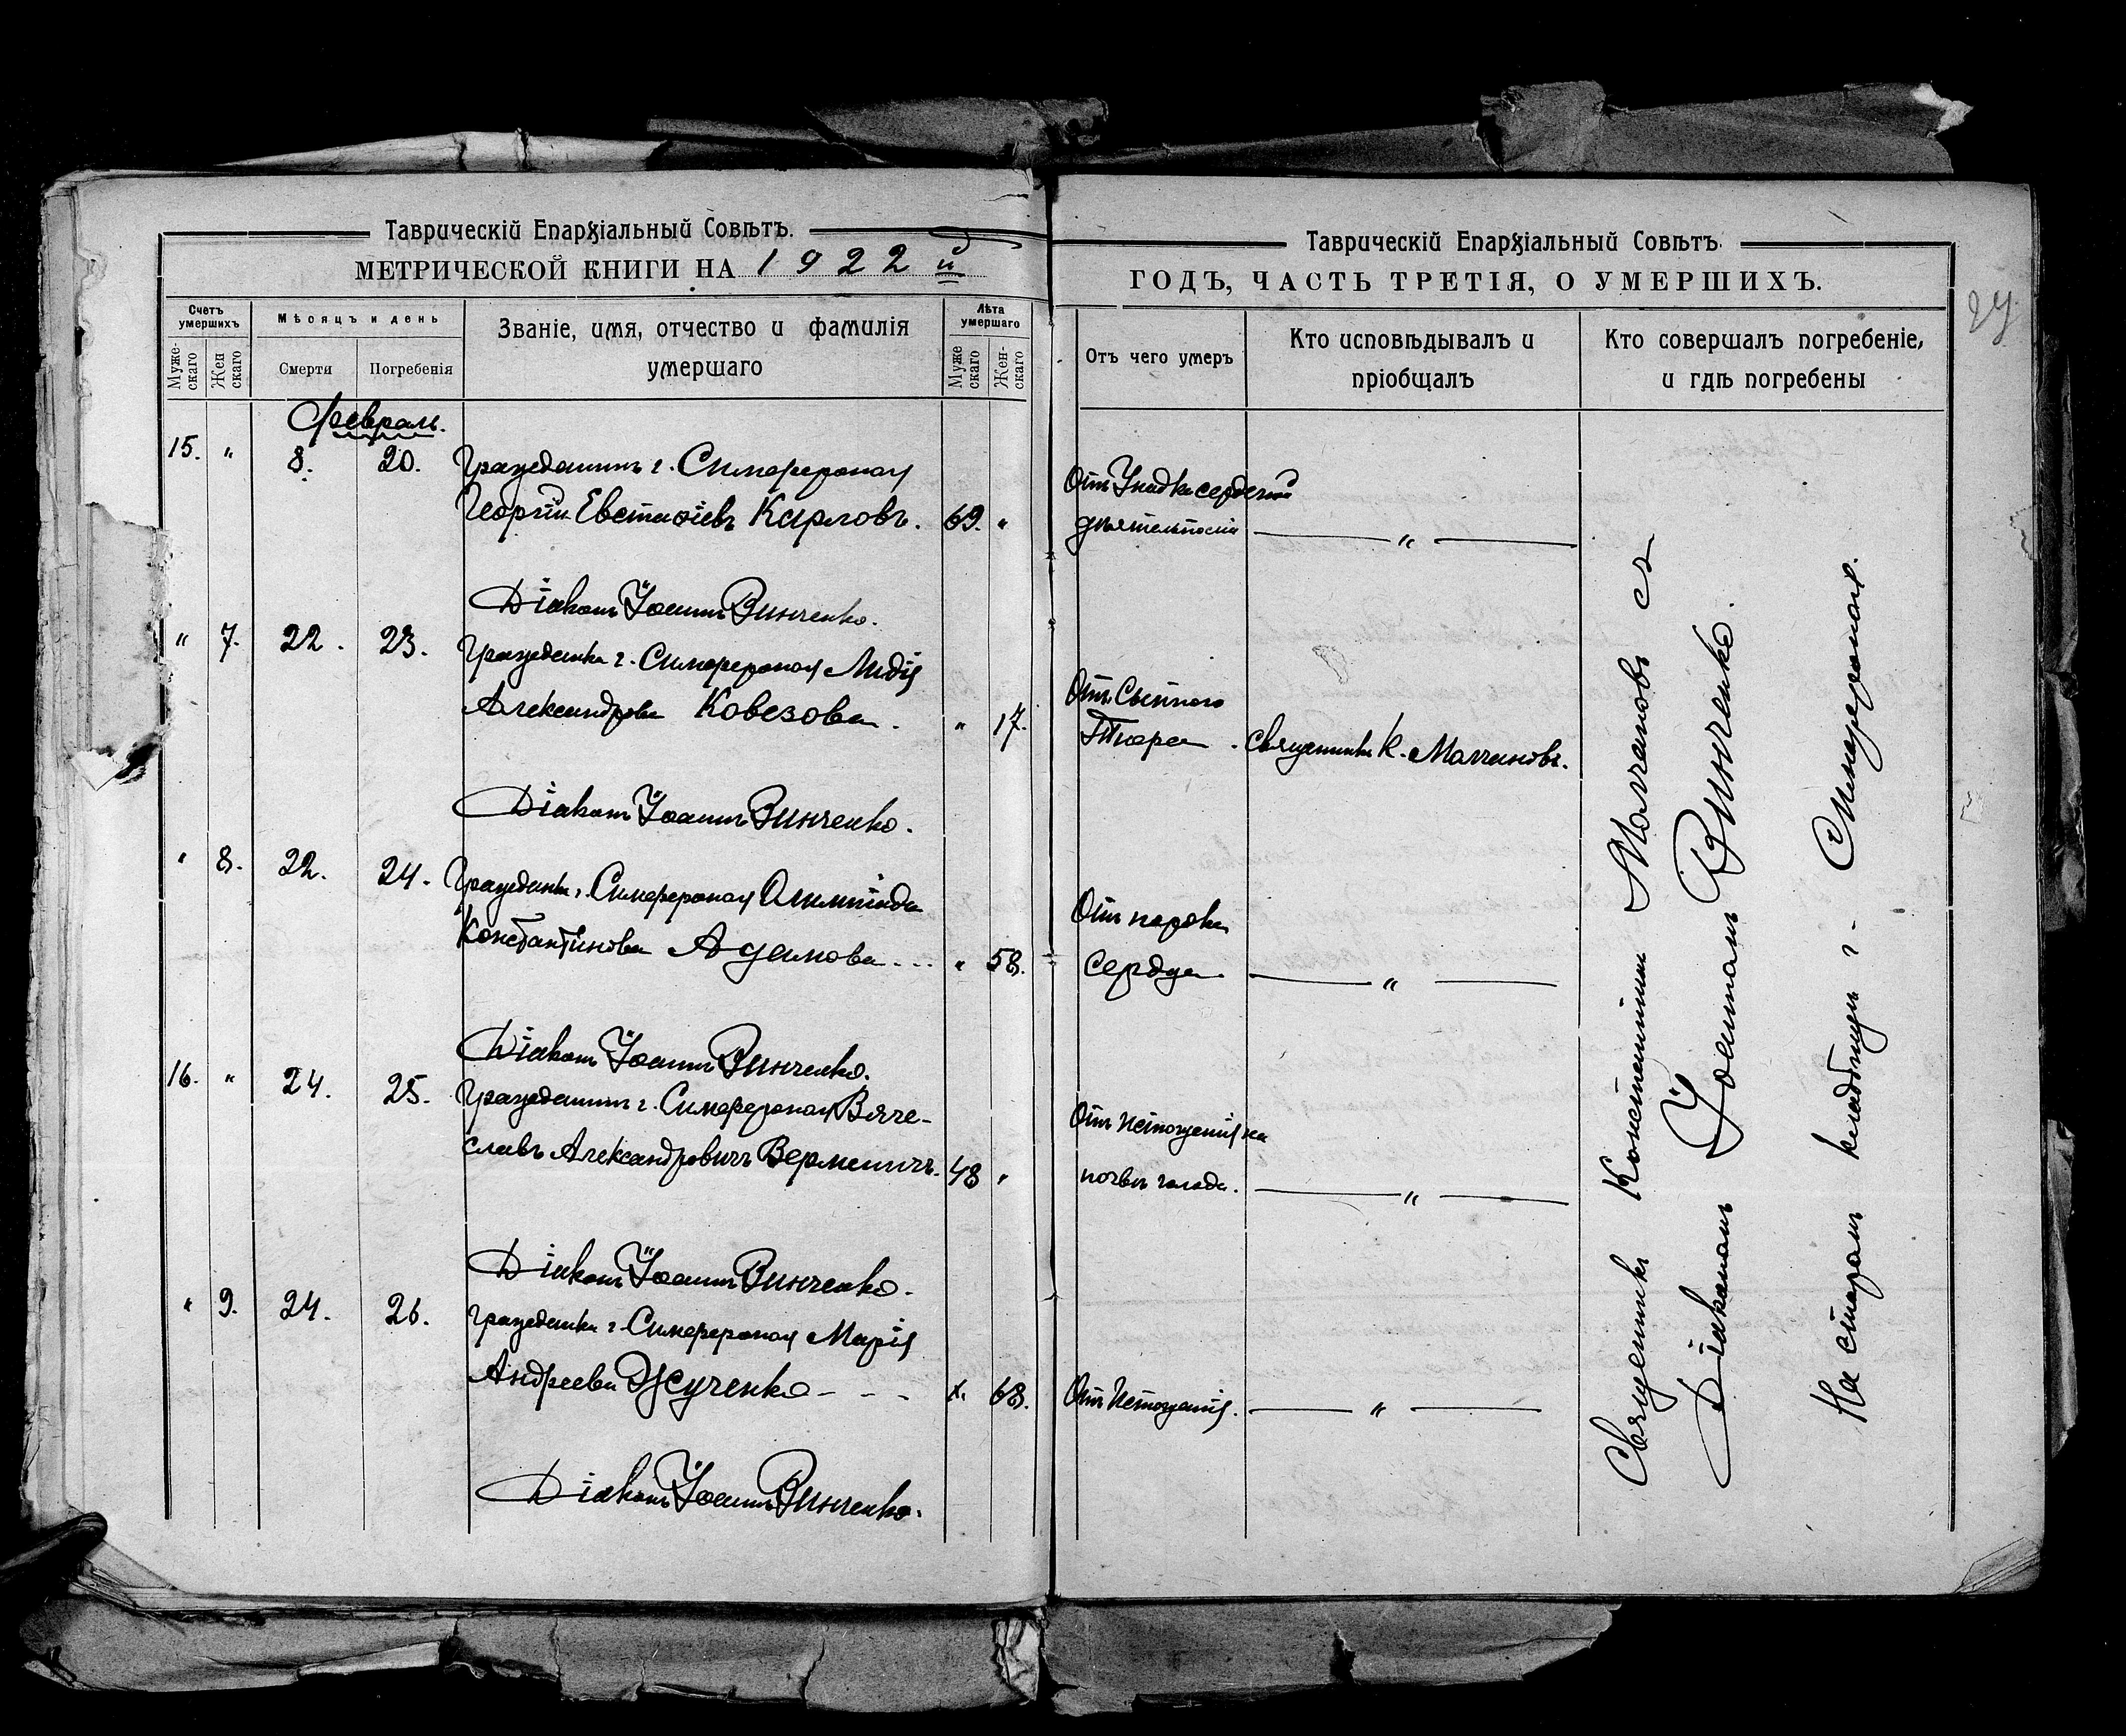 Таврическій Епархіальный Совѣтъ.
МЕТРИЧЕСКОЙ КНИГИ НА 1922 й
Счетъ умершихъ
Мѣсяцъ и день
Званіе, имя, отчество и фамилія
умершаго
Лѣта умершаго
Муже-скаго
Жен скаго
Смерти
Погребенія
Муже скаго
Жен-скаго
Февраль.
15. " 8. 20. Гражданинъ г. Симферополя
Георгій Евстафіевъ Карловъ. 69. "
Діаконъ Іоаннъ Винченко.
" 7. 22. 23. Гражданка г. Симферополя Лидія
Александрова Ковезова. " 17.
Діаконъ Іоаннъ Винченко.
" 8. 22. 24. Гражданка г. Симферополя Олимпіада
Константинова Адамова... " 58.
Діаконъ Іоаннъ Винченко.
16. " 24. 25. Гражданинъ г. Симферополя Вяче-
славъ Александровичъ Верменичъ. 48 "
Діаконъ Іоаннъ Винченко.
" 9. 24. 26. Гражданка г. Симферополя Марія
Андреева Жученко - - - 68.
Діаконъ Іоаннъ Винченко.
Таврическій Епархіальный Совѣтъ.
ГОДЪ, ЧАСТЬ ТРЕТІЯ, О УМЕРШИХЪ.
Отъ чего умеръ
Кто исповѣдывалъ и
пріобщалъ
Кто совершалъ погребеніе,
и гдѣ погребены
Отъ Упадка сердечной
дѣятельности — " —
Отъ Сыпного
Тифа. Священникъ К. Молчановъ.
Отъ порока
сердца — " —
Отъ Истощенія на
почвѣ голода. — " —
Отъ Истощенія. — " —
Священникъ Константинъ Молчановъ съ
Діакономъ Іоанномъ Винченко.
На старомъ кладбищѣ г. Симферополя.